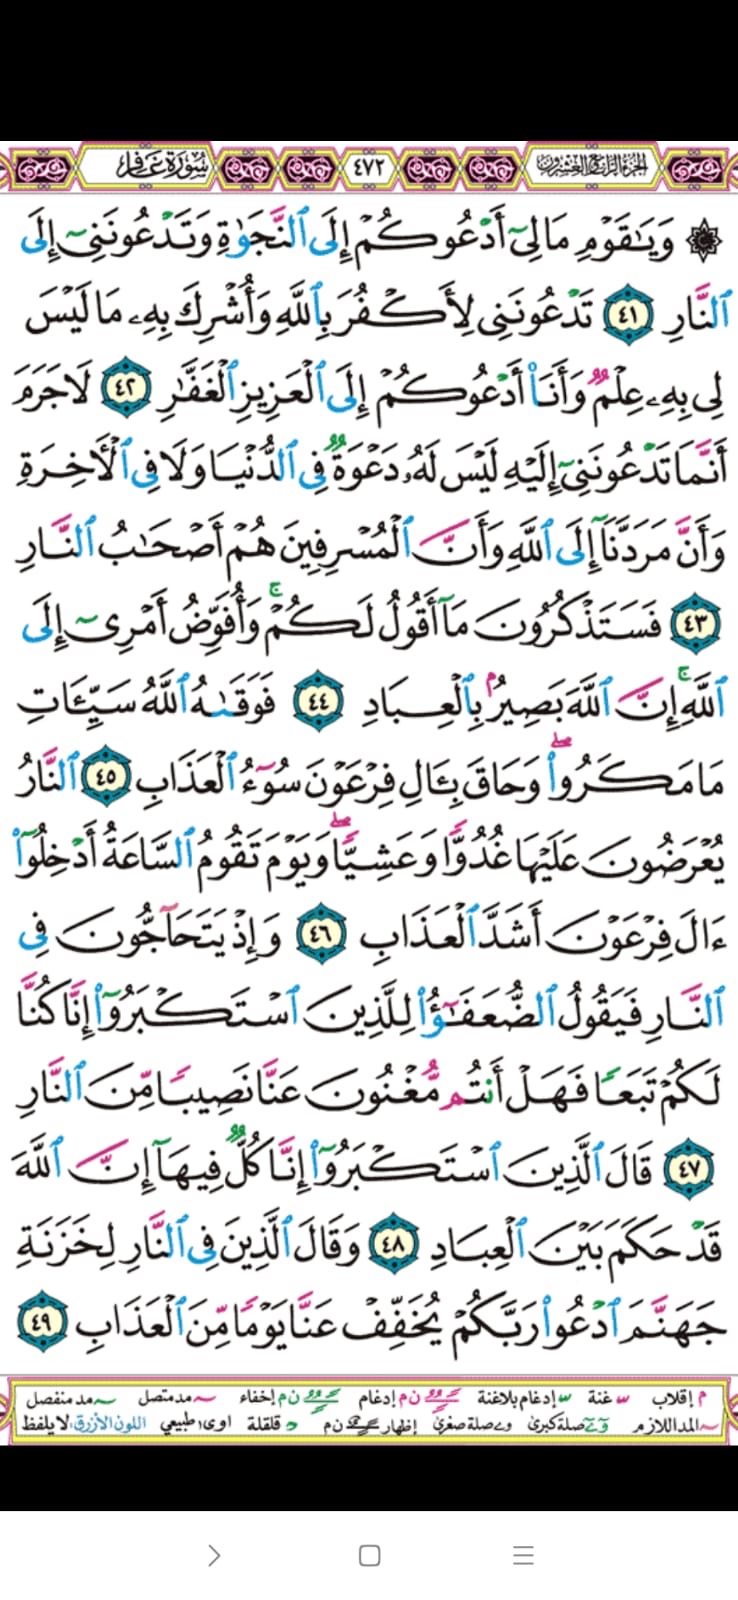 سُورَةُ غَافِر ٤٧٢ الجزء الرابع والعشرون
۞ وَيَٰقَوْمِ مَا لِىٓ أَدْعُوكُمْ إِلَى ٱلنَّجَوٰةِ وَتَدْعُونَنِىٓ إِلَى
ٱلنَّارِ ٤١ تَدْعُونَنِى لِأَكْفُرَ بِٱللَّهِ وَأُشْرِكَ بِهِۦ مَا لَيْسَ
لِى بِهِۦ عِلْمٌ وَأَنَا۠ أَدْعُوكُمْ إِلَى ٱلْعَزِيزِ ٱلْغَفَّٰرِ ٤٢ لَا جَرَمَ
أَنَّمَا تَدْعُونَنِىٓ إِلَيْهِ لَيْسَ لَهُۥ دَعْوَةٌ فِى ٱلدُّنْيَا وَلَا فِى ٱلْأَخِرَةِ
وَأَنَّ مَرَدَّنَآ إِلَى ٱللَّهِ وَأَنَّ ٱلْمُسْرِفِينَ هُمْ أَصْحَٰبُ ٱلنَّارِ
٤٣ فَسَتَذْكُرُونَ مَآ أَقُولُ لَكُمْ ۚ وَأُفَوِّضُ أَمْرِىٓ إِلَى
ٱللَّهِ ۚ إِنَّ ٱللَّهَ بَصِيرٌۢ بِٱلْعِبَادِ ٤٤ فَوَقَىٰهُ ٱللَّهُ سَيِّـَٔاتِ
مَا مَكَرُوا۟ ۖ وَحَاقَ بِـَٔالِ فِرْعَوْنَ سُوٓءُ ٱلْعَذَابِ ٤٥ ٱلنَّارُ
يُعْرَضُونَ عَلَيْهَا غُدُوًّا وَعَشِيًّا ۖ وَيَوْمَ تَقُومُ ٱلسَّاعَةُ أَدْخِلُوٓا۟
ءَالَ فِرْعَوْنَ أَشَدَّ ٱلْعَذَابِ ٤٦ وَإِذْ يَتَحَآجُّونَ فِى
ٱلنَّارِ فَيَقُولُ ٱلضُّعَفَٰٓؤُا۟ لِلَّذِينَ ٱسْتَكْبَرُوٓا۟ إِنَّا كُنَّا
لَكُمْ تَبَعًا فَهَلْ أَنتُم مُّغْنُونَ عَنَّا نَصِيبًا مِّنَ ٱلنَّارِ
٤٧ قَالَ ٱلَّذِينَ ٱسْتَكْبَرُوٓا۟ إِنَّا كُلٌّ فِيهَآ إِنَّ ٱللَّهَ
قَدْ حَكَمَ بَيْنَ ٱلْعِبَادِ ٤٨ وَقَالَ ٱلَّذِينَ فِى ٱلنَّارِ لِخَزَنَةِ
جَهَنَّمَ ٱدْعُوا۟ رَبَّكُمْ يُخَفِّفْ عَنَّا يَوْمًا مِّنَ ٱلْعَذَابِ ٤٩
م إقلاب غنة إدغام بلاغنة ن م إدغام ن م إخفاء مد متصل مد منفصل
المد اللازم صلة كبرى صلة صغرى إظهار ن م قلقلة اوى طبيعي اللون الأزرق: لا يلفظ